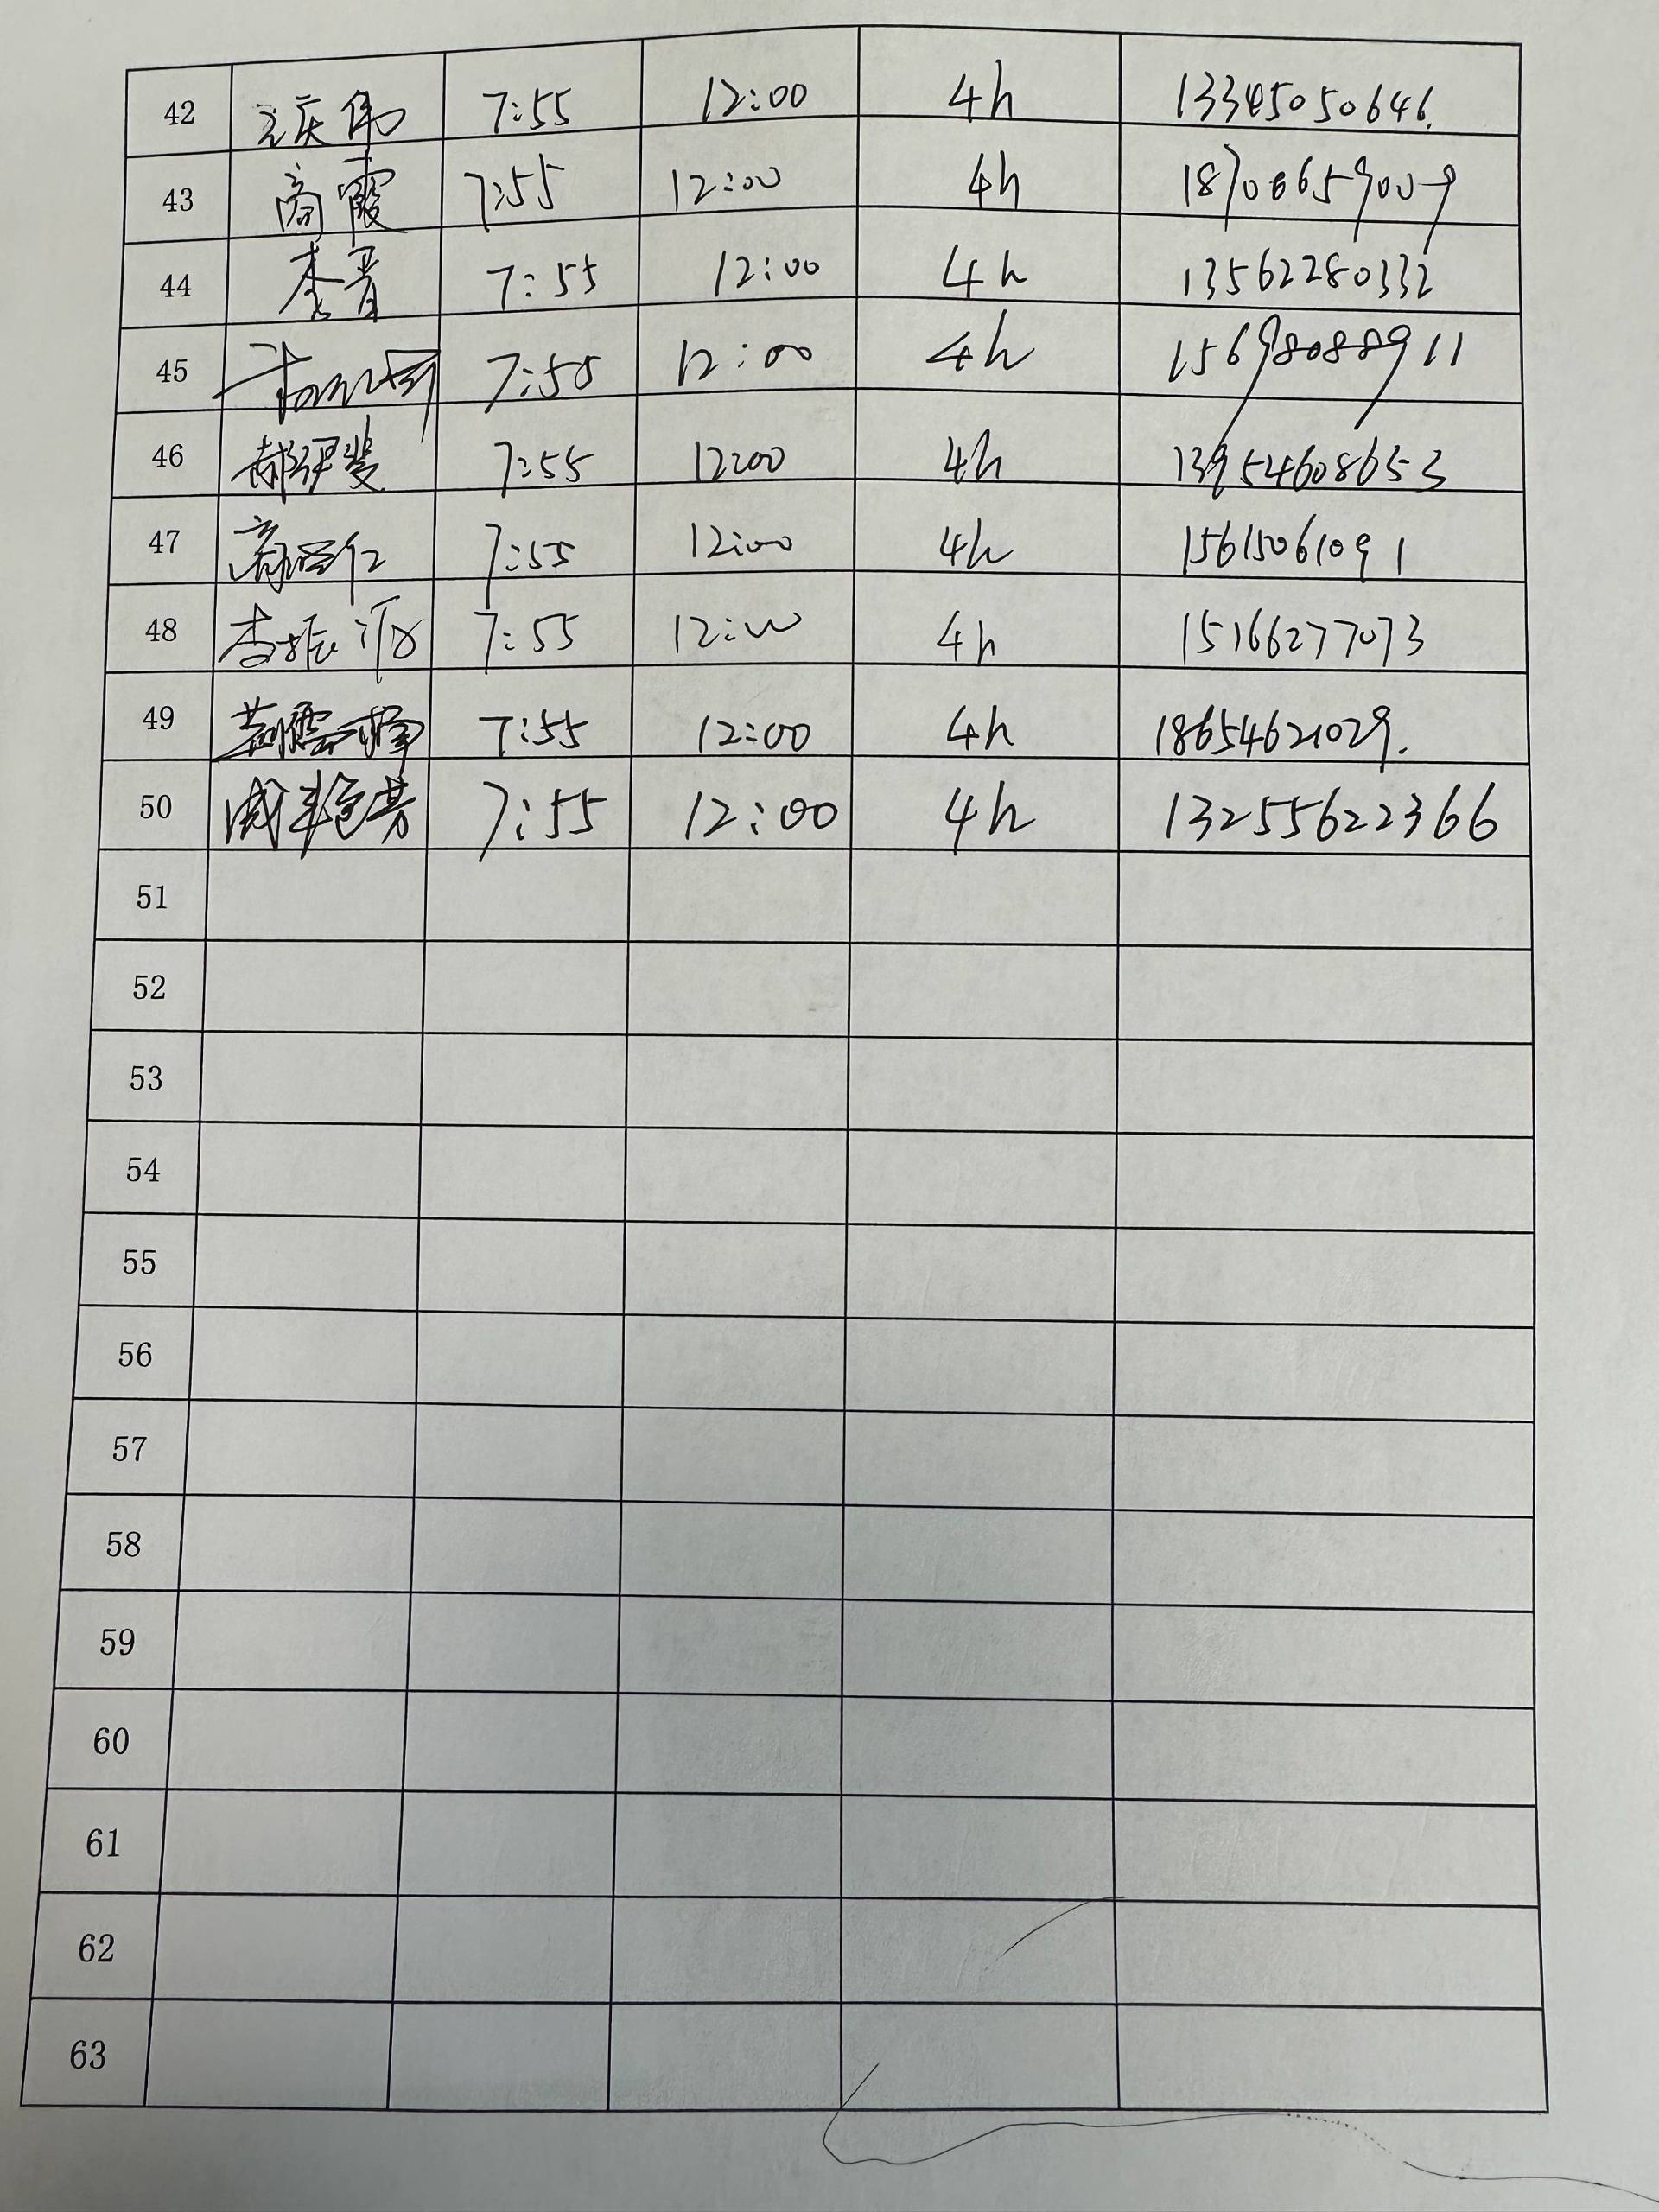 42 庆伟 7:55 12:00 4h 13345050646.
43 商霞 7:55 12:00 4h 18706659009
44 李晋 7:55 12:00 4h 13562280332
45 7:55 12:00 4h 15698088911
46 郝 斐 7:55 12:00 4h 13954608653
47 仁 7:55 12:00 4h 15615061091
48 李振 7:55 12:00 4h 15166277073
49 7:55 12:00 4h 18654621029.
50 7:55 12:00 4h 13255622366
51
52
53
54
55
56
57
58
59
60
61
62
63